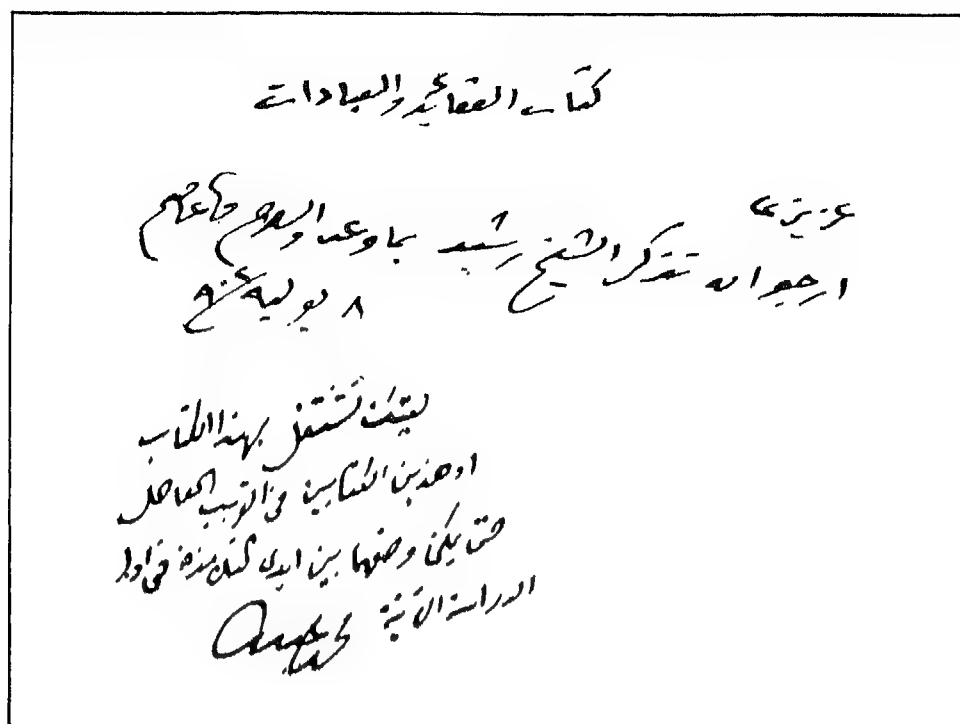 كتاب العقائد والعبادات
عزيزي
ارجو ان تذكر الشيخ رشيد بما وعد والسلام عاصم
٨ يوليه ٩٠٤
ليتك تشتغل بهذا الكتاب
او هذين الكتابين في القريب العاجل
حتى يمكن وضعهما بين ايدى التلامذة في اول
الدراسة الآتية محمد عبده